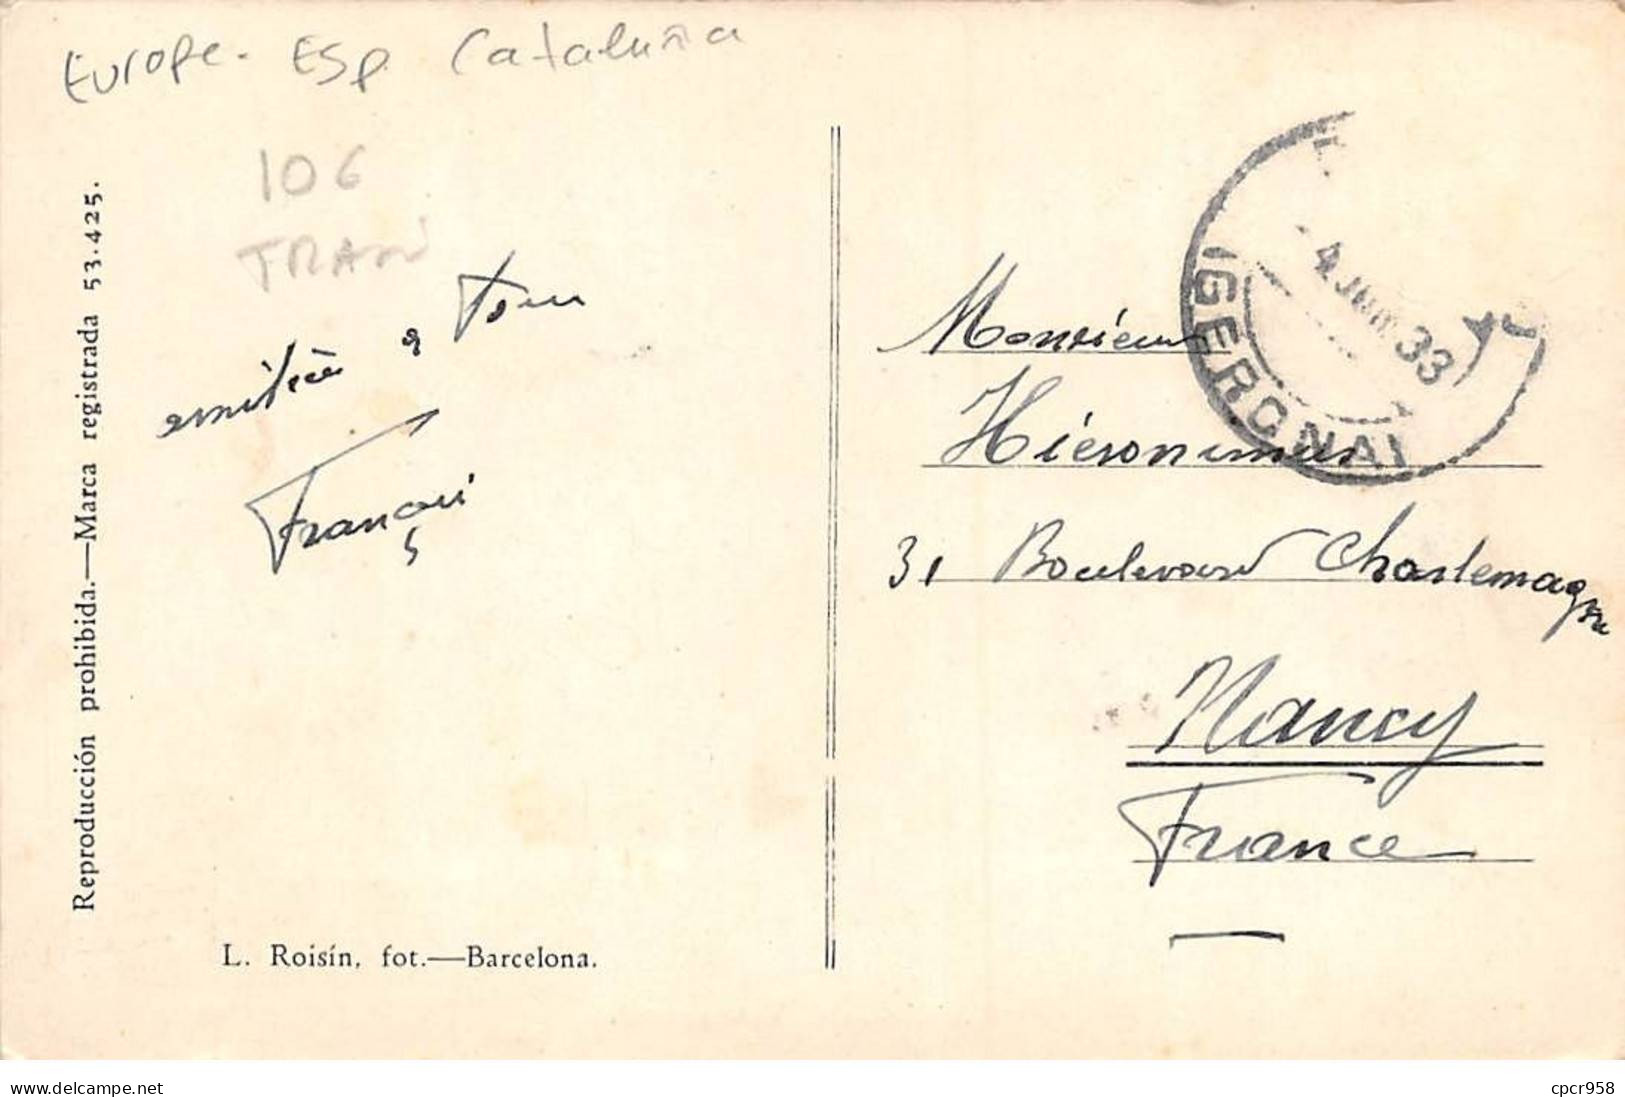 Europe. Esp Cataluña
106
TRAM
Reproducción prohibida.—Marca registrada 53.425.
amitiés à tous
François
L. Roisín, fot.—Barcelona.
4 JUN 33
(GERONA)
Monsieur
Hieronimus
31 Boulevard Charlemagne
Nancy
France
delcampe.net
cpcr958